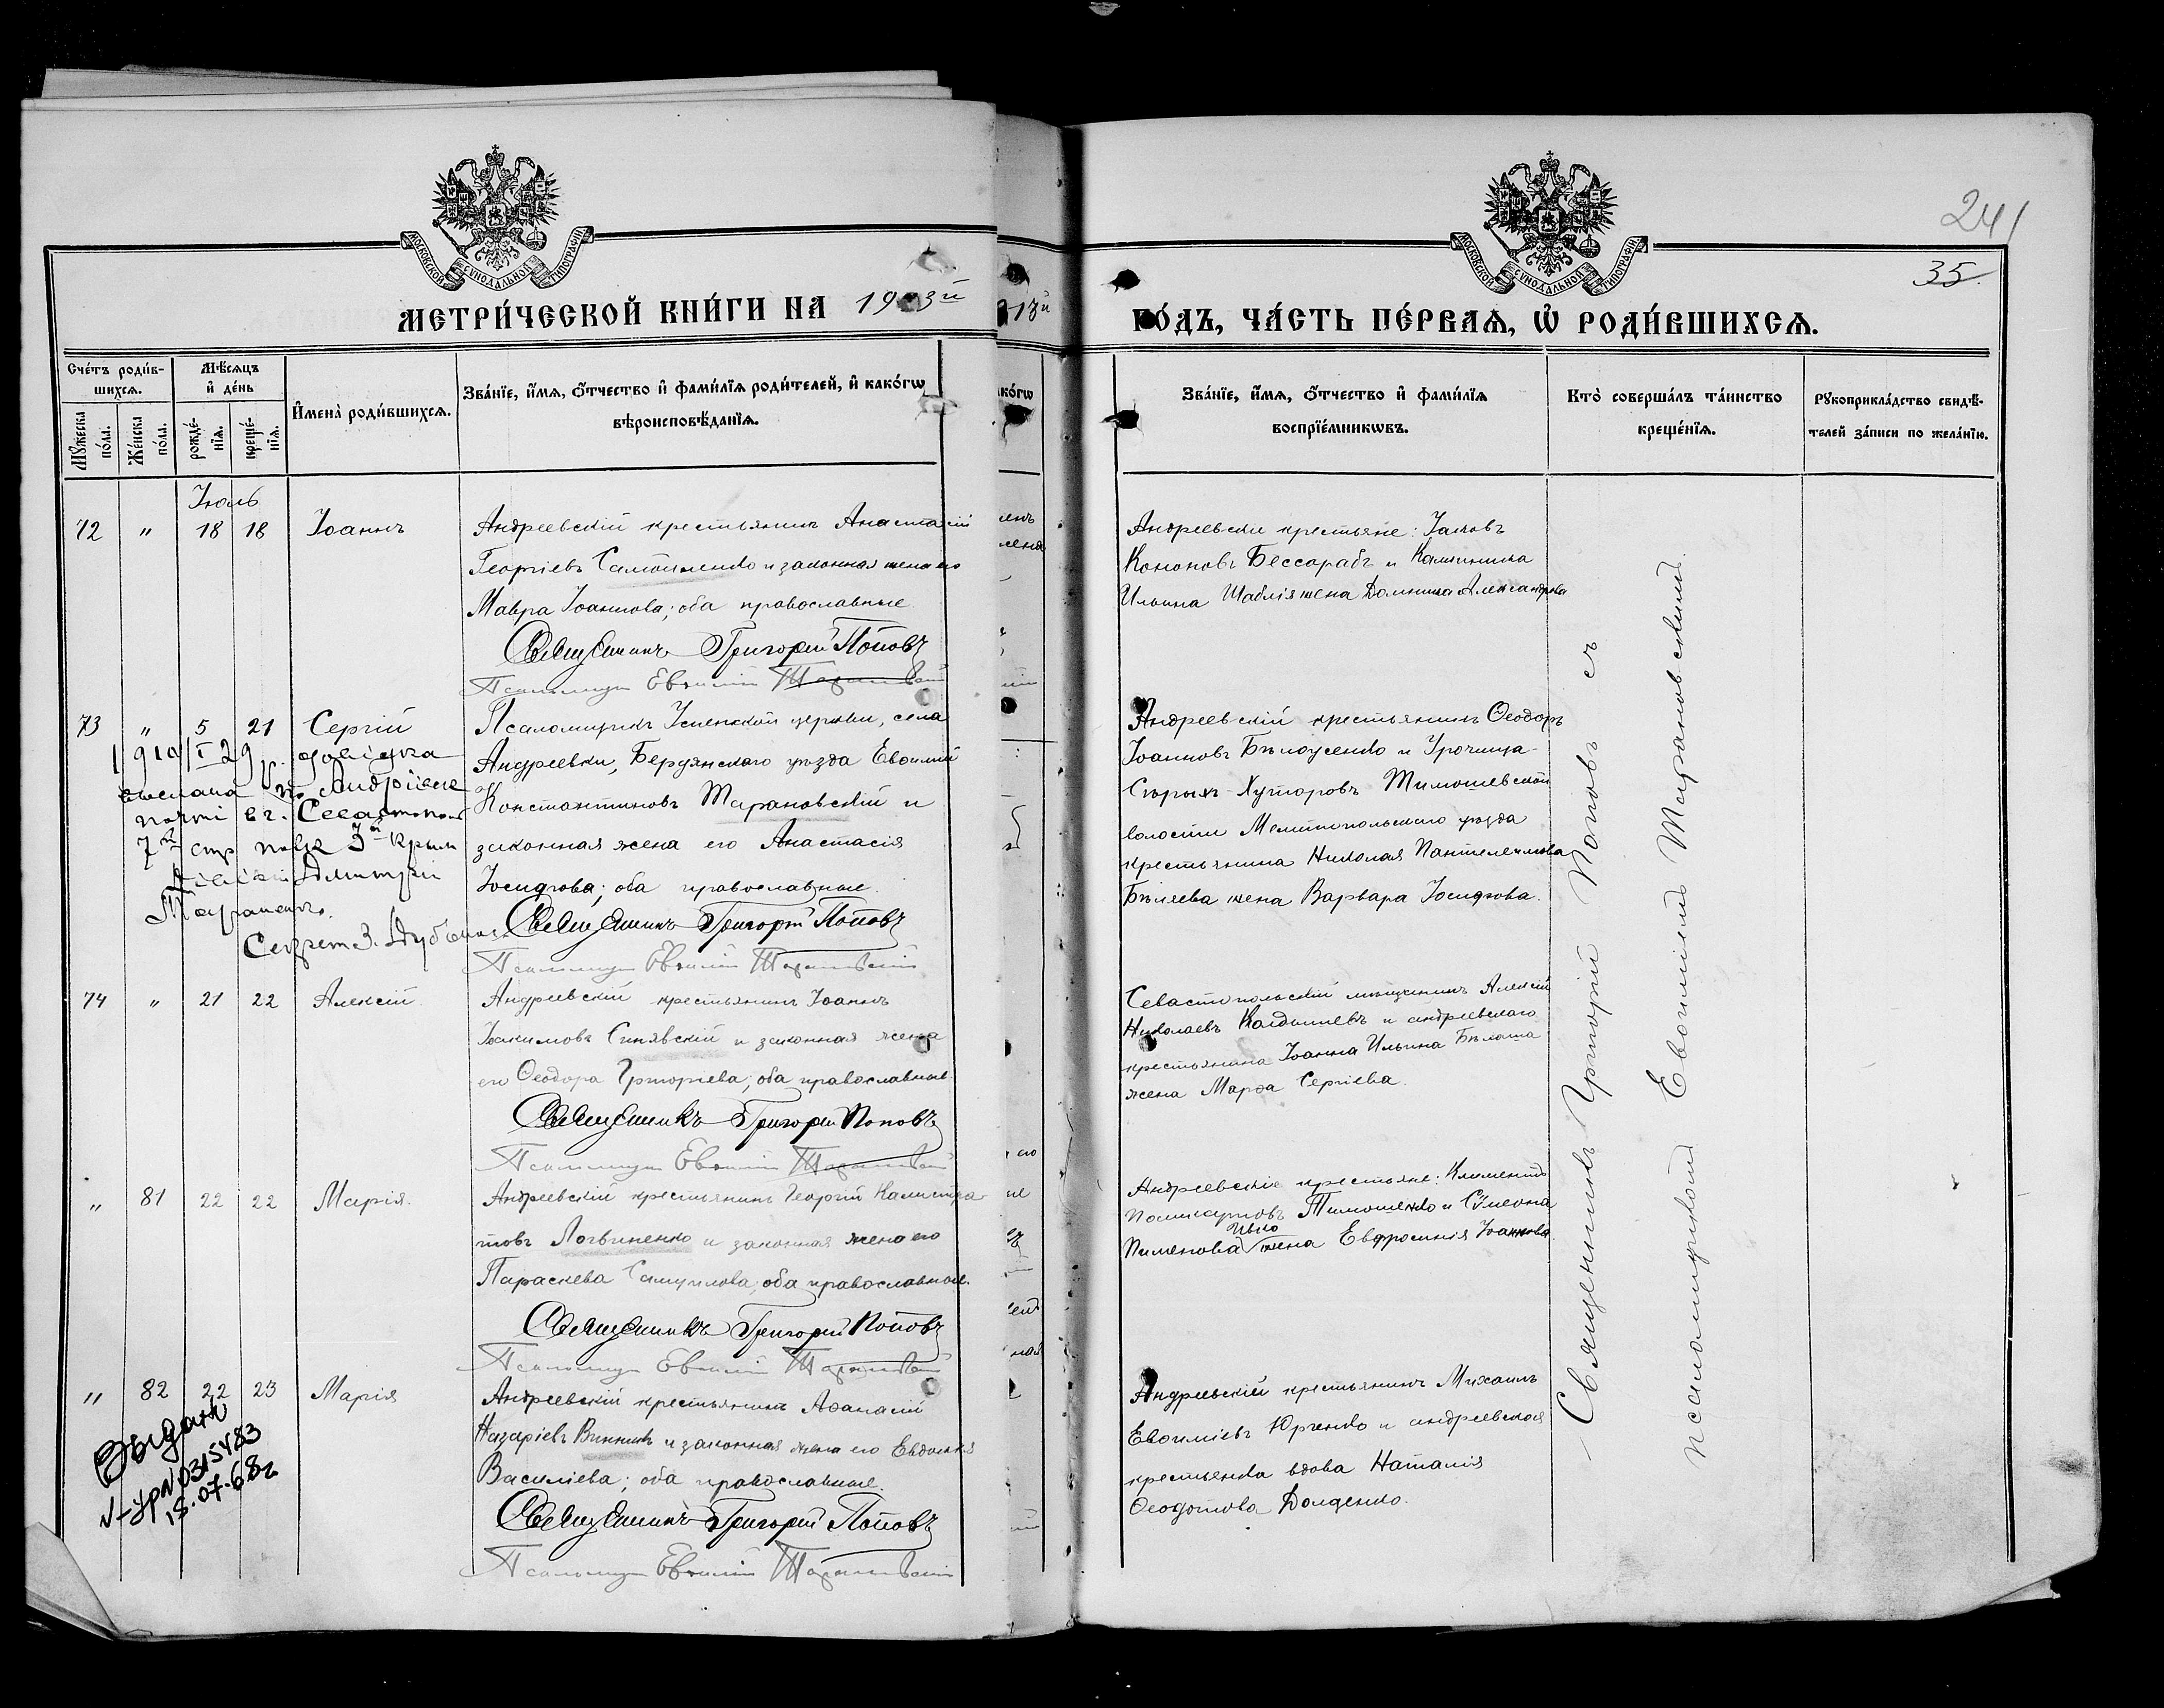 241
35
МОСКОВСКОЙ СѴНОДАЛЬНОЙ ТИПОГРАФІИ
МОСКОВСКОЙ СѴНОДАЛЬНОЙ ТИПОГРАФІИ
МЕТРИ́ЧЕСКОЙ КНИ́ГИ НА 1913й
ГО́ДЪ, ЧА́СТЬ ПЕ́РВАѦ, Ѡ҆ РОДИ́ВШИХСѦ.
Сче́тъ роди́в-
шихсѧ.
Мꙋ́жеска по́ла.
Же́нска по́ла.
Мѣ́сѧцъ
и҆ де́нь
рожде́-нїѧ.
креще́-нїѧ.
И҆мена̀ роди́вшихсѧ.
Зва́нїе, и҆́мѧ, ѻ҆́тчество и҆ фами́лїѧ роди́телей, и҆ како́гѡ
вѣроисповѣ́данїѧ.
Зва́нїе, и҆́мѧ, ѻ҆́тчество и҆ фами́лїѧ
воспрїе́мникѡвъ.
Кто̀ соверша́лъ та́инство
креще́нїѧ.
Рꙋкоприкла́дство свидѣ́-
телей за́писи по жела́нїю.
Іюль
72 " 18 18 Іоаннъ
Андреевскій крестьянинъ Анастасій
Георгіевъ Самойленко и законная жена его
Мавра Іоаннова; оба православные
Священникъ Григорій Поповъ
Псаломщик Евѳимій Тарановскій
Андреевскіе крестьяне: Іаковъ
Кононовъ Бессарабъ и Каллиника
Ильина Шаблія жена Домника Александрова
73 " 5 21 Сергій
Псаломщикъ Успенской церкви, села
Андреевки, Бердянскаго уѣзда Евѳимій
Константиновъ Тарановскій и
законная жена его Анастасія
Іосифова; оба православные.
Священникъ Григорій Поповъ
Псаломщик Евѳимій Тарановскій
Андреевскій крестьянинъ Ѳеодоръ
Іоанновъ Бѣлоусенко и Урочища
Сѣрыхъ-Хуторовъ Тимошевской
волости Мелитопольскаго уѣзда
крестьянина Николая Пантелеимова
Бѣляева жена Варвара Іосифова.
74 " 21 22 Алексій
Андреевскій крестьянинъ Іоаннъ
Іоакимовъ Синявскій и законная жена
его Ѳеодора Григорьева; оба православные
Священникъ Григорій Поповъ
Псаломщик Евѳимій Тарановскій
Севастопольскій мѣщанинъ Алексій
Николаевъ и андреевскаго
крестьянина Іоанна Ильина
жена Марѳа Сергіева.
" 81 22 22 Марія.
Андреевскій крестьянинъ Георгій Калистра-
товъ Логвиненко и законная жена его
Параскева Самуилова; оба православные.
Священникъ Григорій Поповъ
Псаломщик Евѳимій Тарановскій
Андреевскіе крестьяне: Климентъ
Поликарповъ Тимошенко и Сѵмеона
Пименова жена Евфросинія Іоаннова.
" 82 22 23 Марія
Андреевскій крестьянинъ Аѳанасій
Назаріевъ Винникъ и законная жена его Евдокія
Василіева; оба православные.
Священникъ Григорій Поповъ
Псаломщик Евѳимій Тарановскій
Андреевскій крестьянинъ Михаилъ
Евѳиміевъ Юрченко и андреевская
крестьянка вдова Наталія
Ѳеодотова Долженко.
Священникъ Григорій Поповъ съ
псаломщикомъ Евѳиміемъ Тарановскимъ.
Выдано
18.07.68г